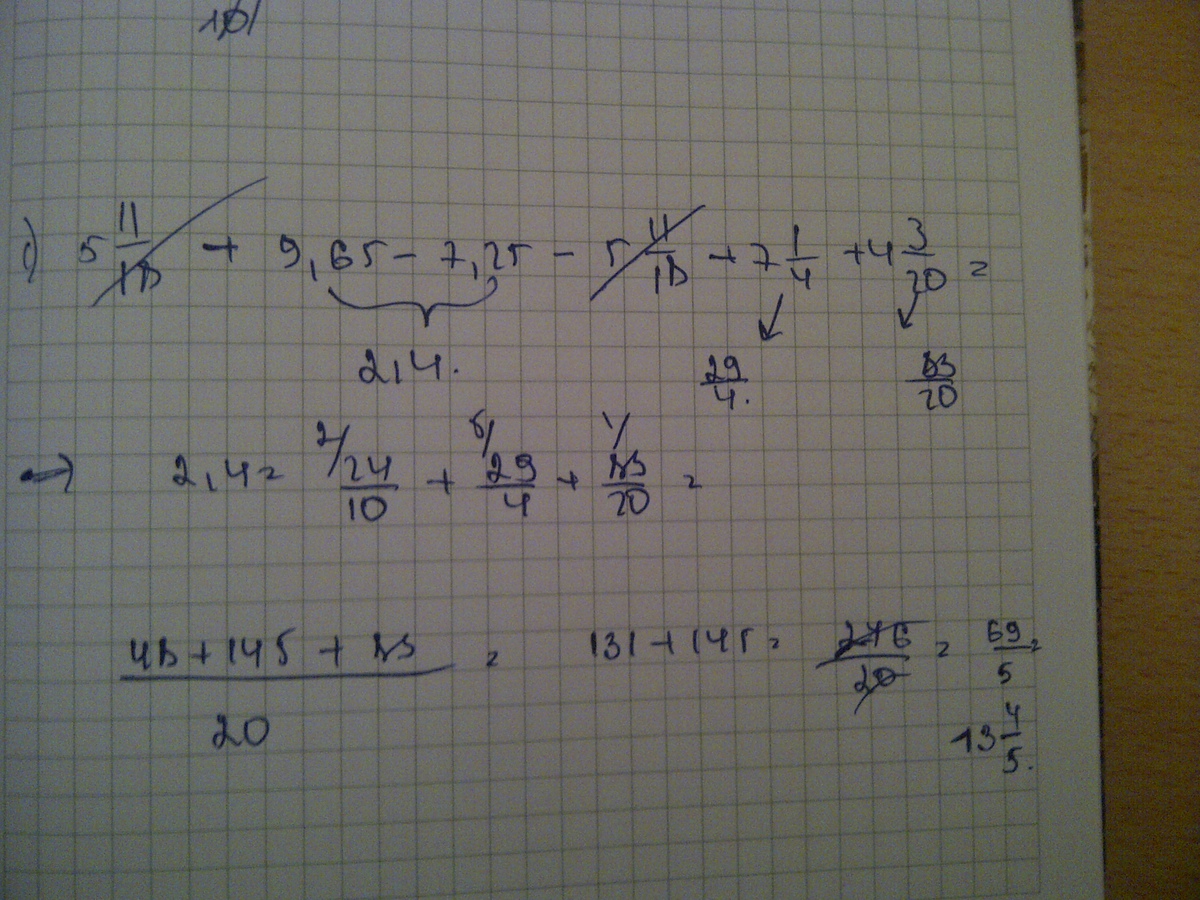 10/
c) 5 11/18 + 9,65 - 7,25 - 5 11/18 + 7 1/4 + 4 3/20 =
2,4. 29/4. 83/20
→ 2,4 = 2/ 24/10 + 5/ 29/4 + 1/ 83/20 =
48 + 145 + 83 / 20 = 131 + 145 = 276/20 = 69/5 =
13 4/5.